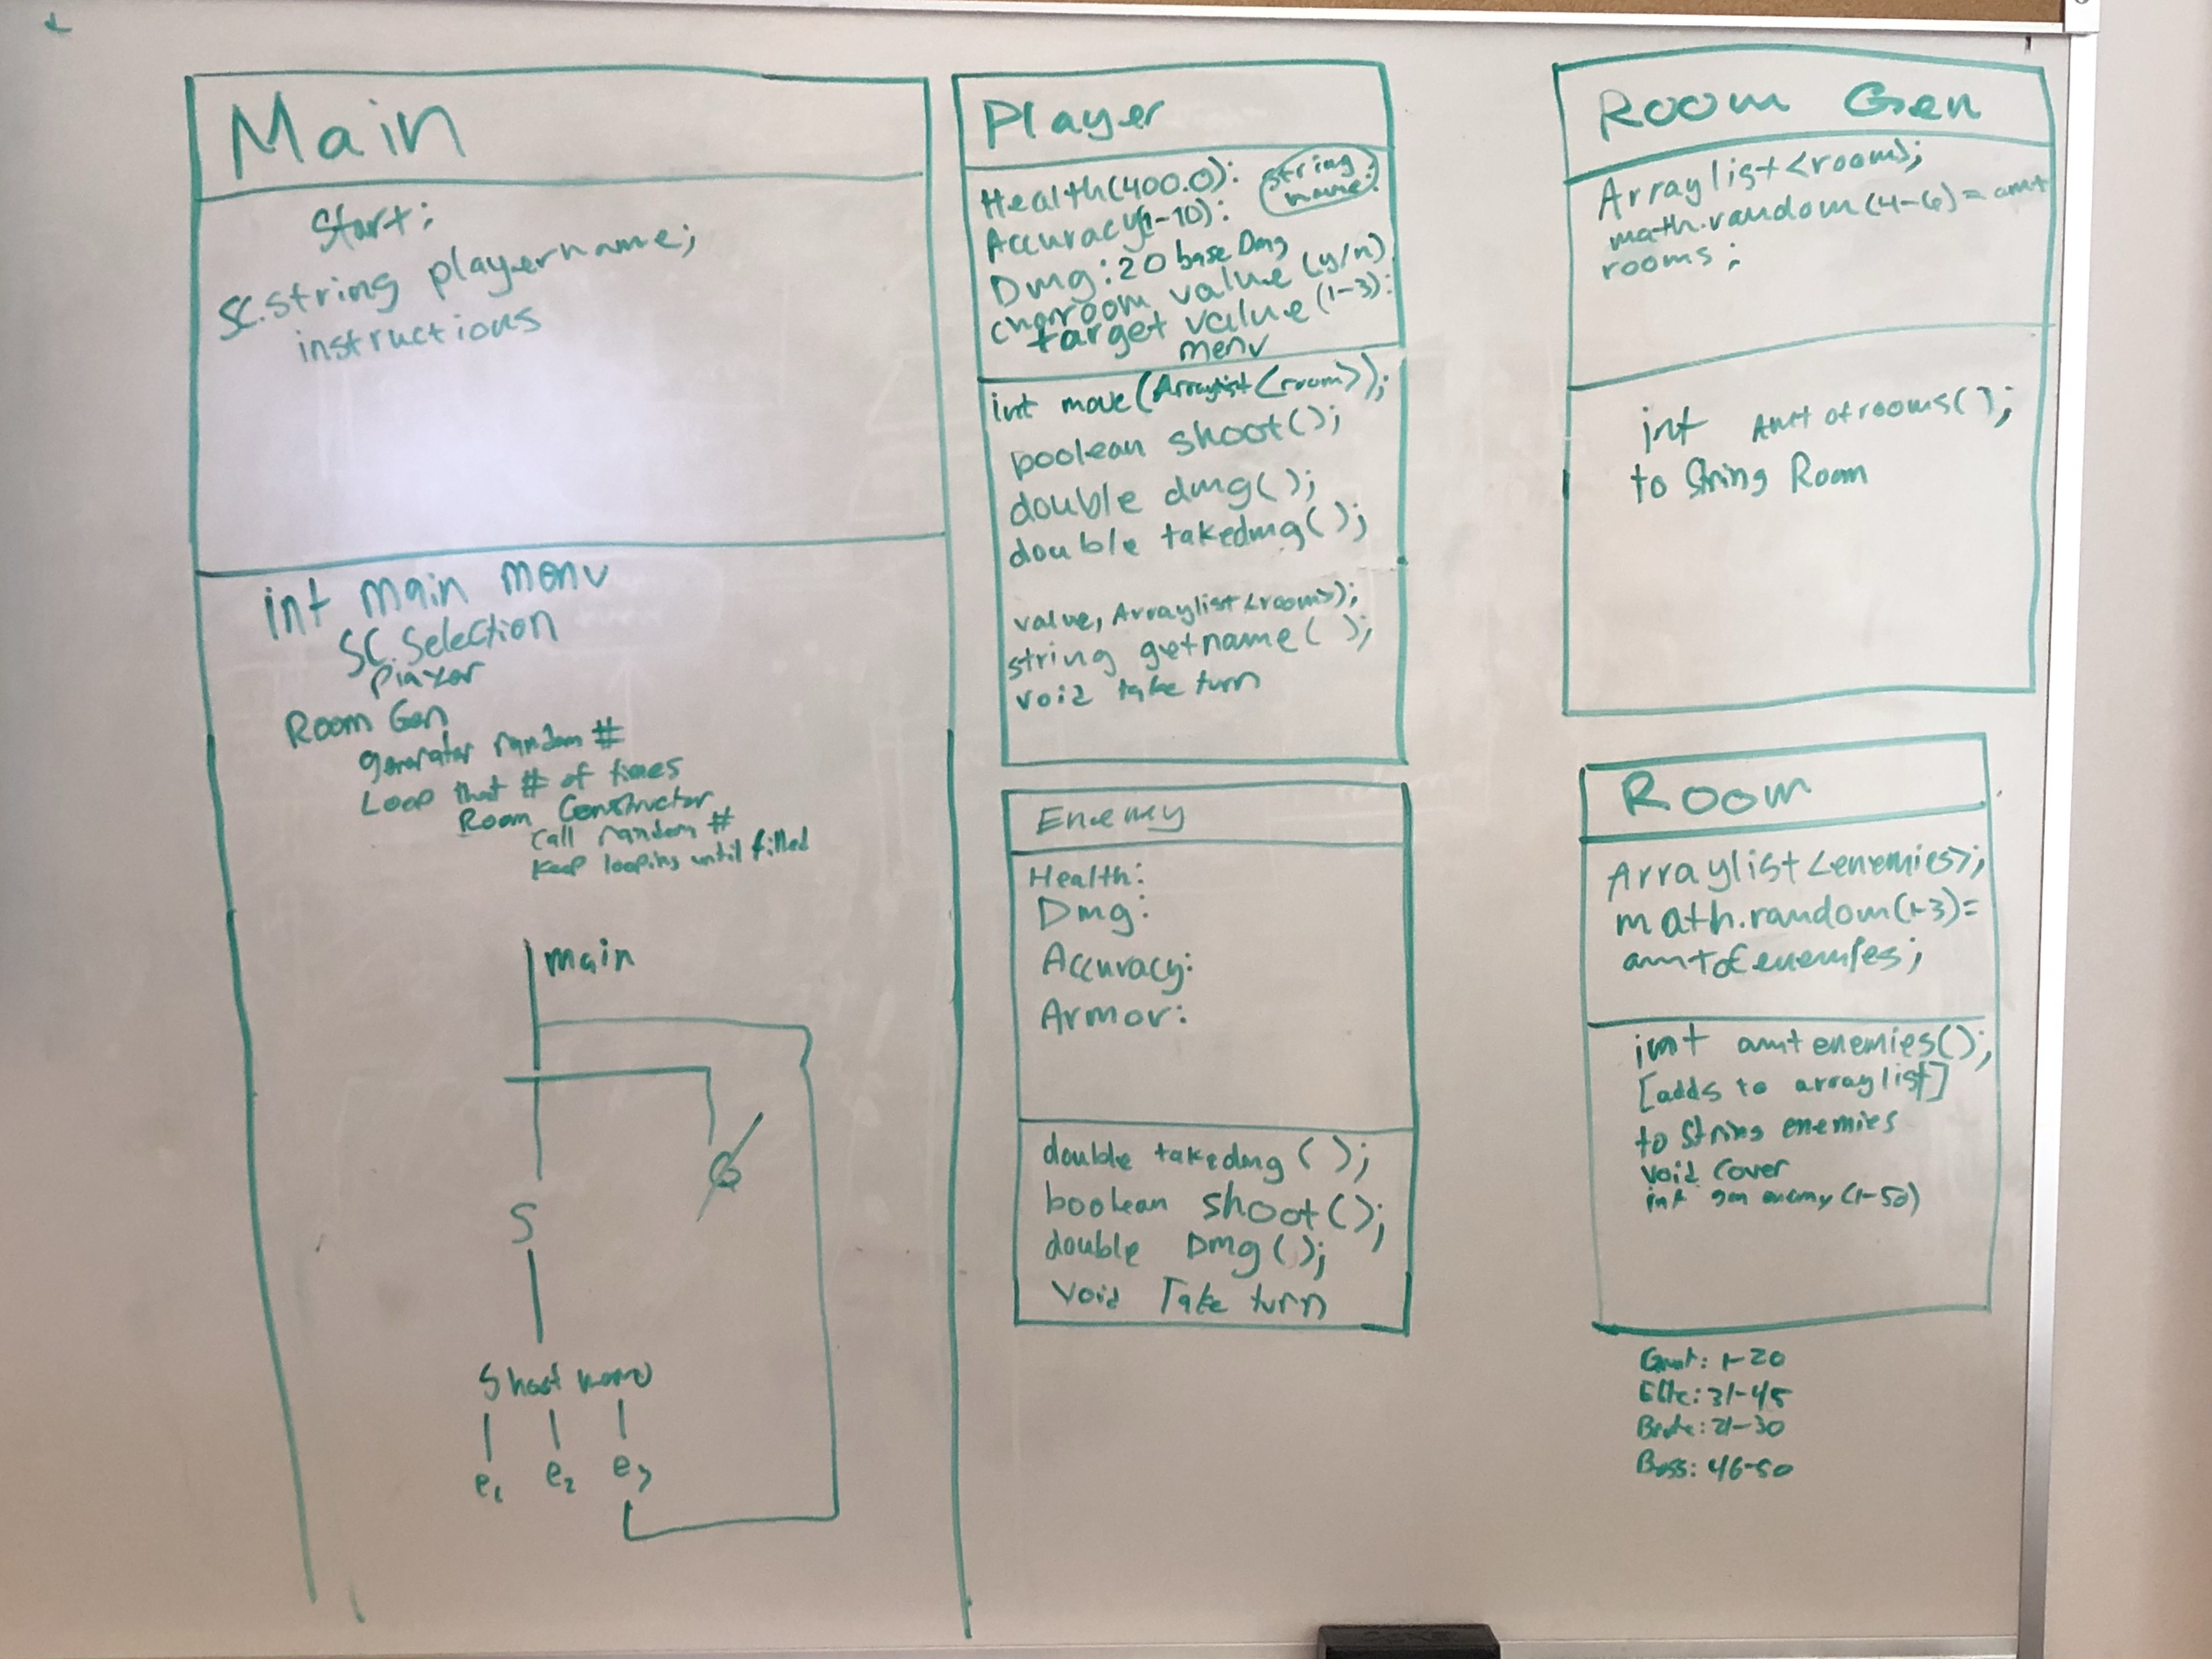 Main
Start:
SC.string playername;
instructions
int main menu
SC.Selection
Player
Room Gen
generator random #
Loop that # of times
Room Constructor
call random #
keep looping until filled
main
S
Shoot menu
e1 e2 e3
Player
Health(400.0): string name:
Accuracy(1-10):
Dmg:20 base Dmg
room value (y/n)
target value (1-3):
menu
int move(Arraylist<room>);
boolean shoot();
double dmg();
double takedmg();
value, Arraylist<rooms>);
string getname( );
void take turn
Enemy
Health:
Dmg:
Accuracy:
Armor:
double takedmg ( );
boolean shoot();
double Dmg();
void Take turn
Room Gen
Arraylist<room>;
math.random(4-6)= amt
rooms;
int Amt of rooms( );
to String Room
Room
Arraylist<enemies>;
math.random(1-3)=
amtofenemies;
int amt enemies();
[adds to arraylist]
to String enemies
void Cover
int gen enemy (1-50)
Grunt: 1-20
Elite: 31-45
Brute: 21-30
Boss: 46-50